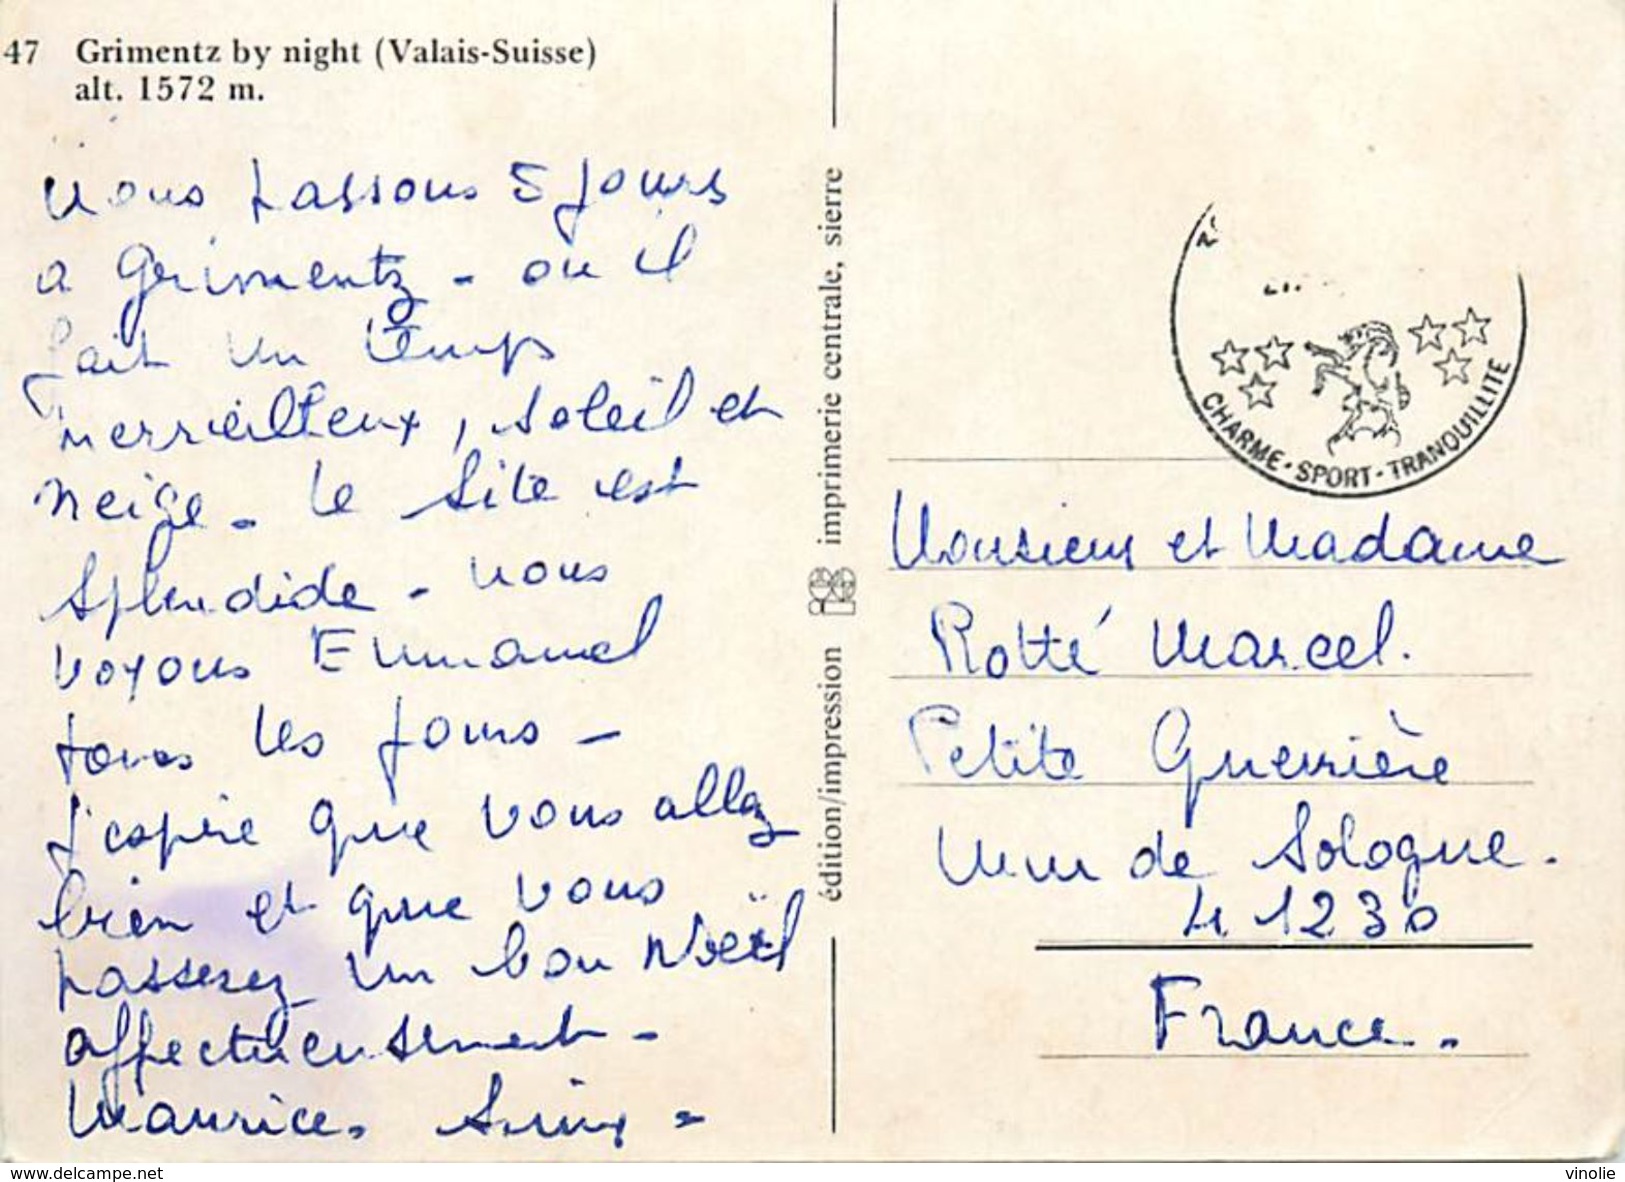 47 Grimentz by night (Valais-Suisse)
alt. 1572 m.
Nous passons 5 jours
a Grimentz - ou il
fait un temps
merveilleux, soleil et
neige - le site est
splendide - nous
voyons Emmanuel
tous les jours -
J'espère que vous allez
bien et que vous
passerez un bon Noël
affectueusement -
Maurice.
édition/impression imprimerie centrale, sierre
CHARME - SPORT - TRANQUILLITE
Monsieur et Madame
Rotté Marcel.
Petite Guerrière
de Sologne.
41230
France.
www.delcampe.net
vinolie